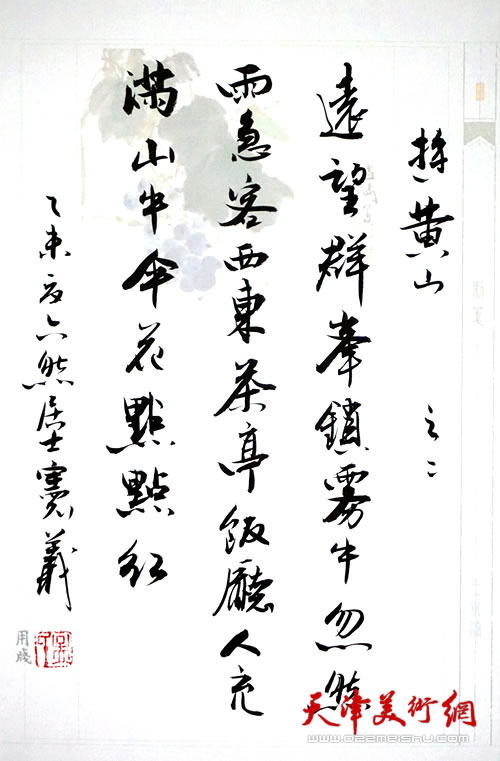 遊黄山 之二
遠望群峯鎖霧中忽然
雨急客西東茶亭飯廳人充
滿山中伞花點點红
乙未夏 熊居士 義
用牋
天津美術網
www.022meishu.com